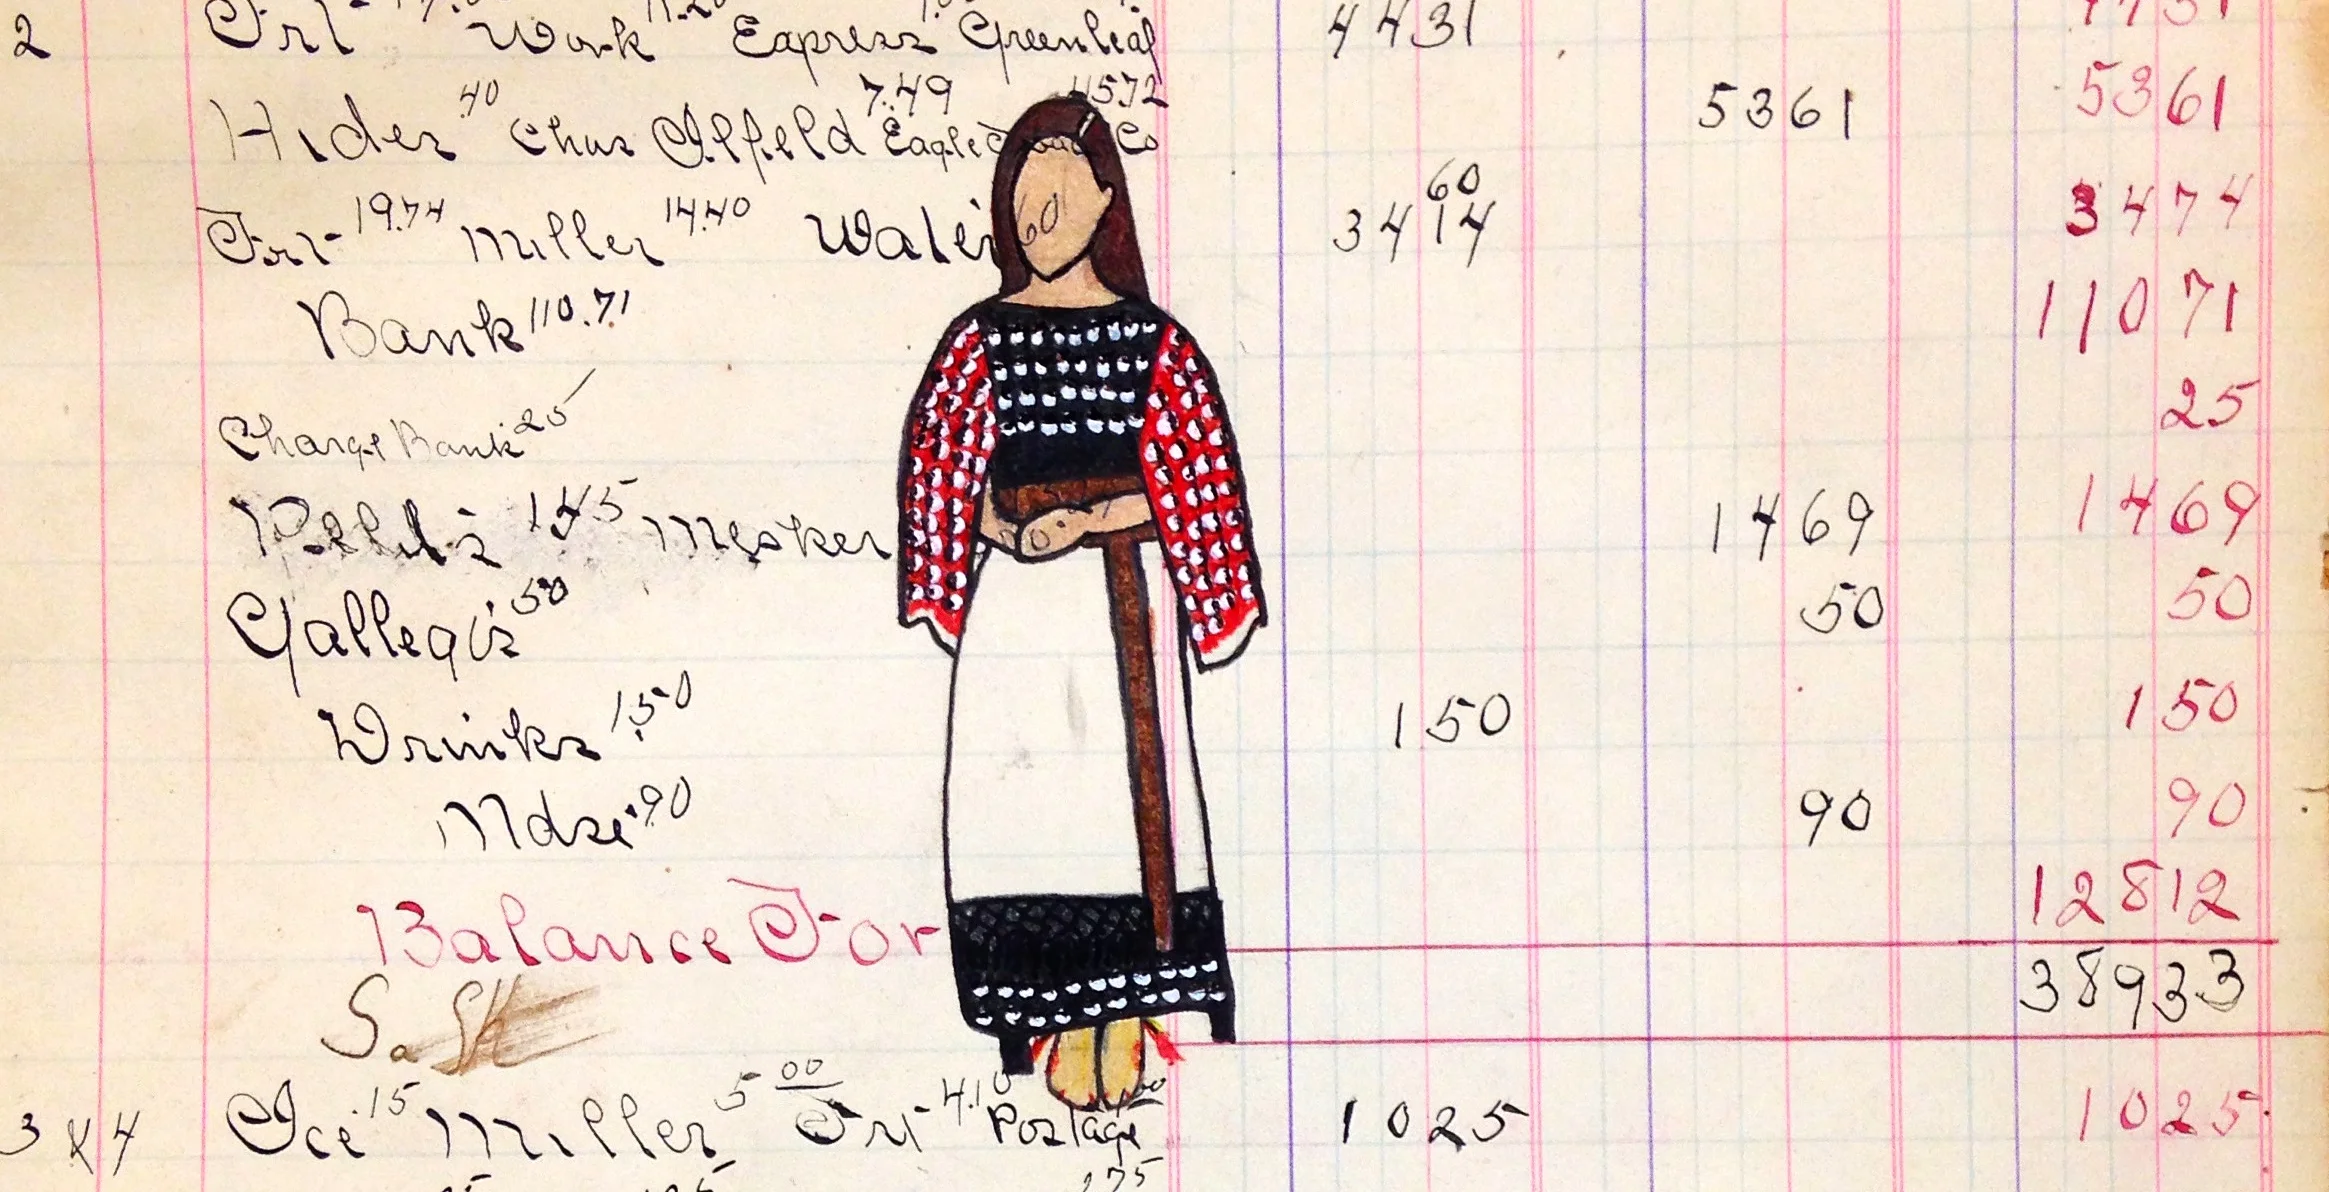 2 Frt Work Express Greenleaf 4431
Hides 40 Chas Ilfeld 7.49 Eagle Co 4572 5361 5361
Frt 19.74 Miller 14.40 Water 60 3414 60 3474
Bank 110.71 11071
Charge Bank 25 25
145 Mesker 1469 1469
Gallegos 50 50 50
Drinks 1.50 150 150
Mdse .90 90 90
Balance For 12812
38933
3 & 4 Ice .15 Miller 5 00 Frt 4.10 Postage 1025 1025